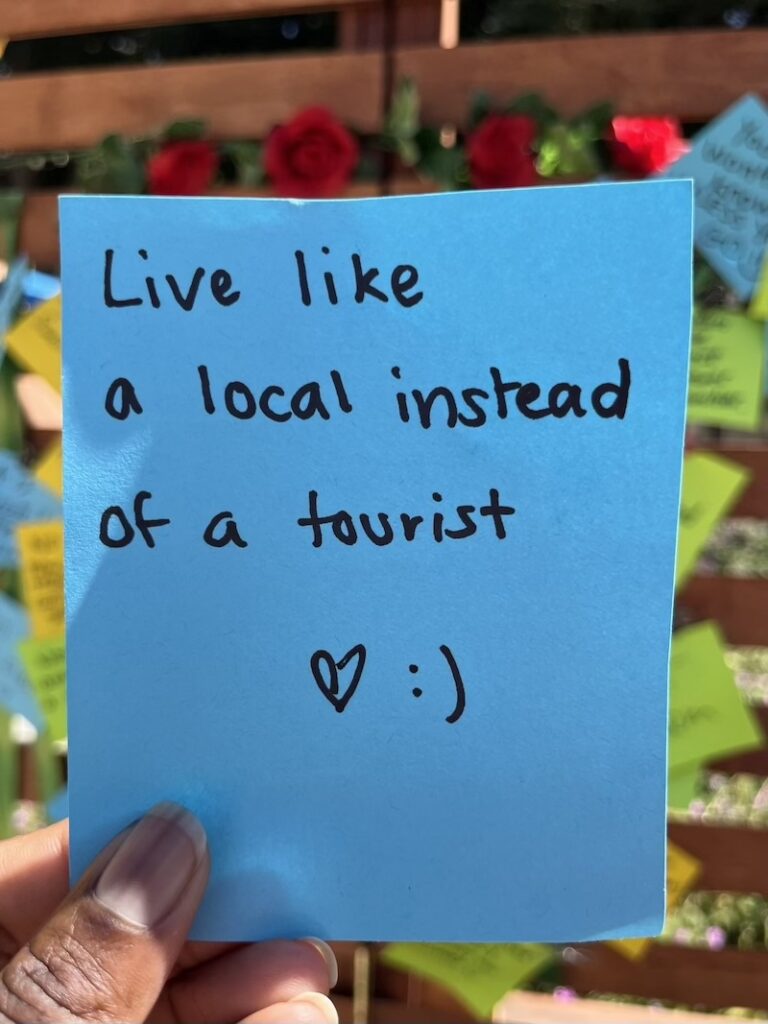 Live like
a local instead
of a tourist
♡ :)